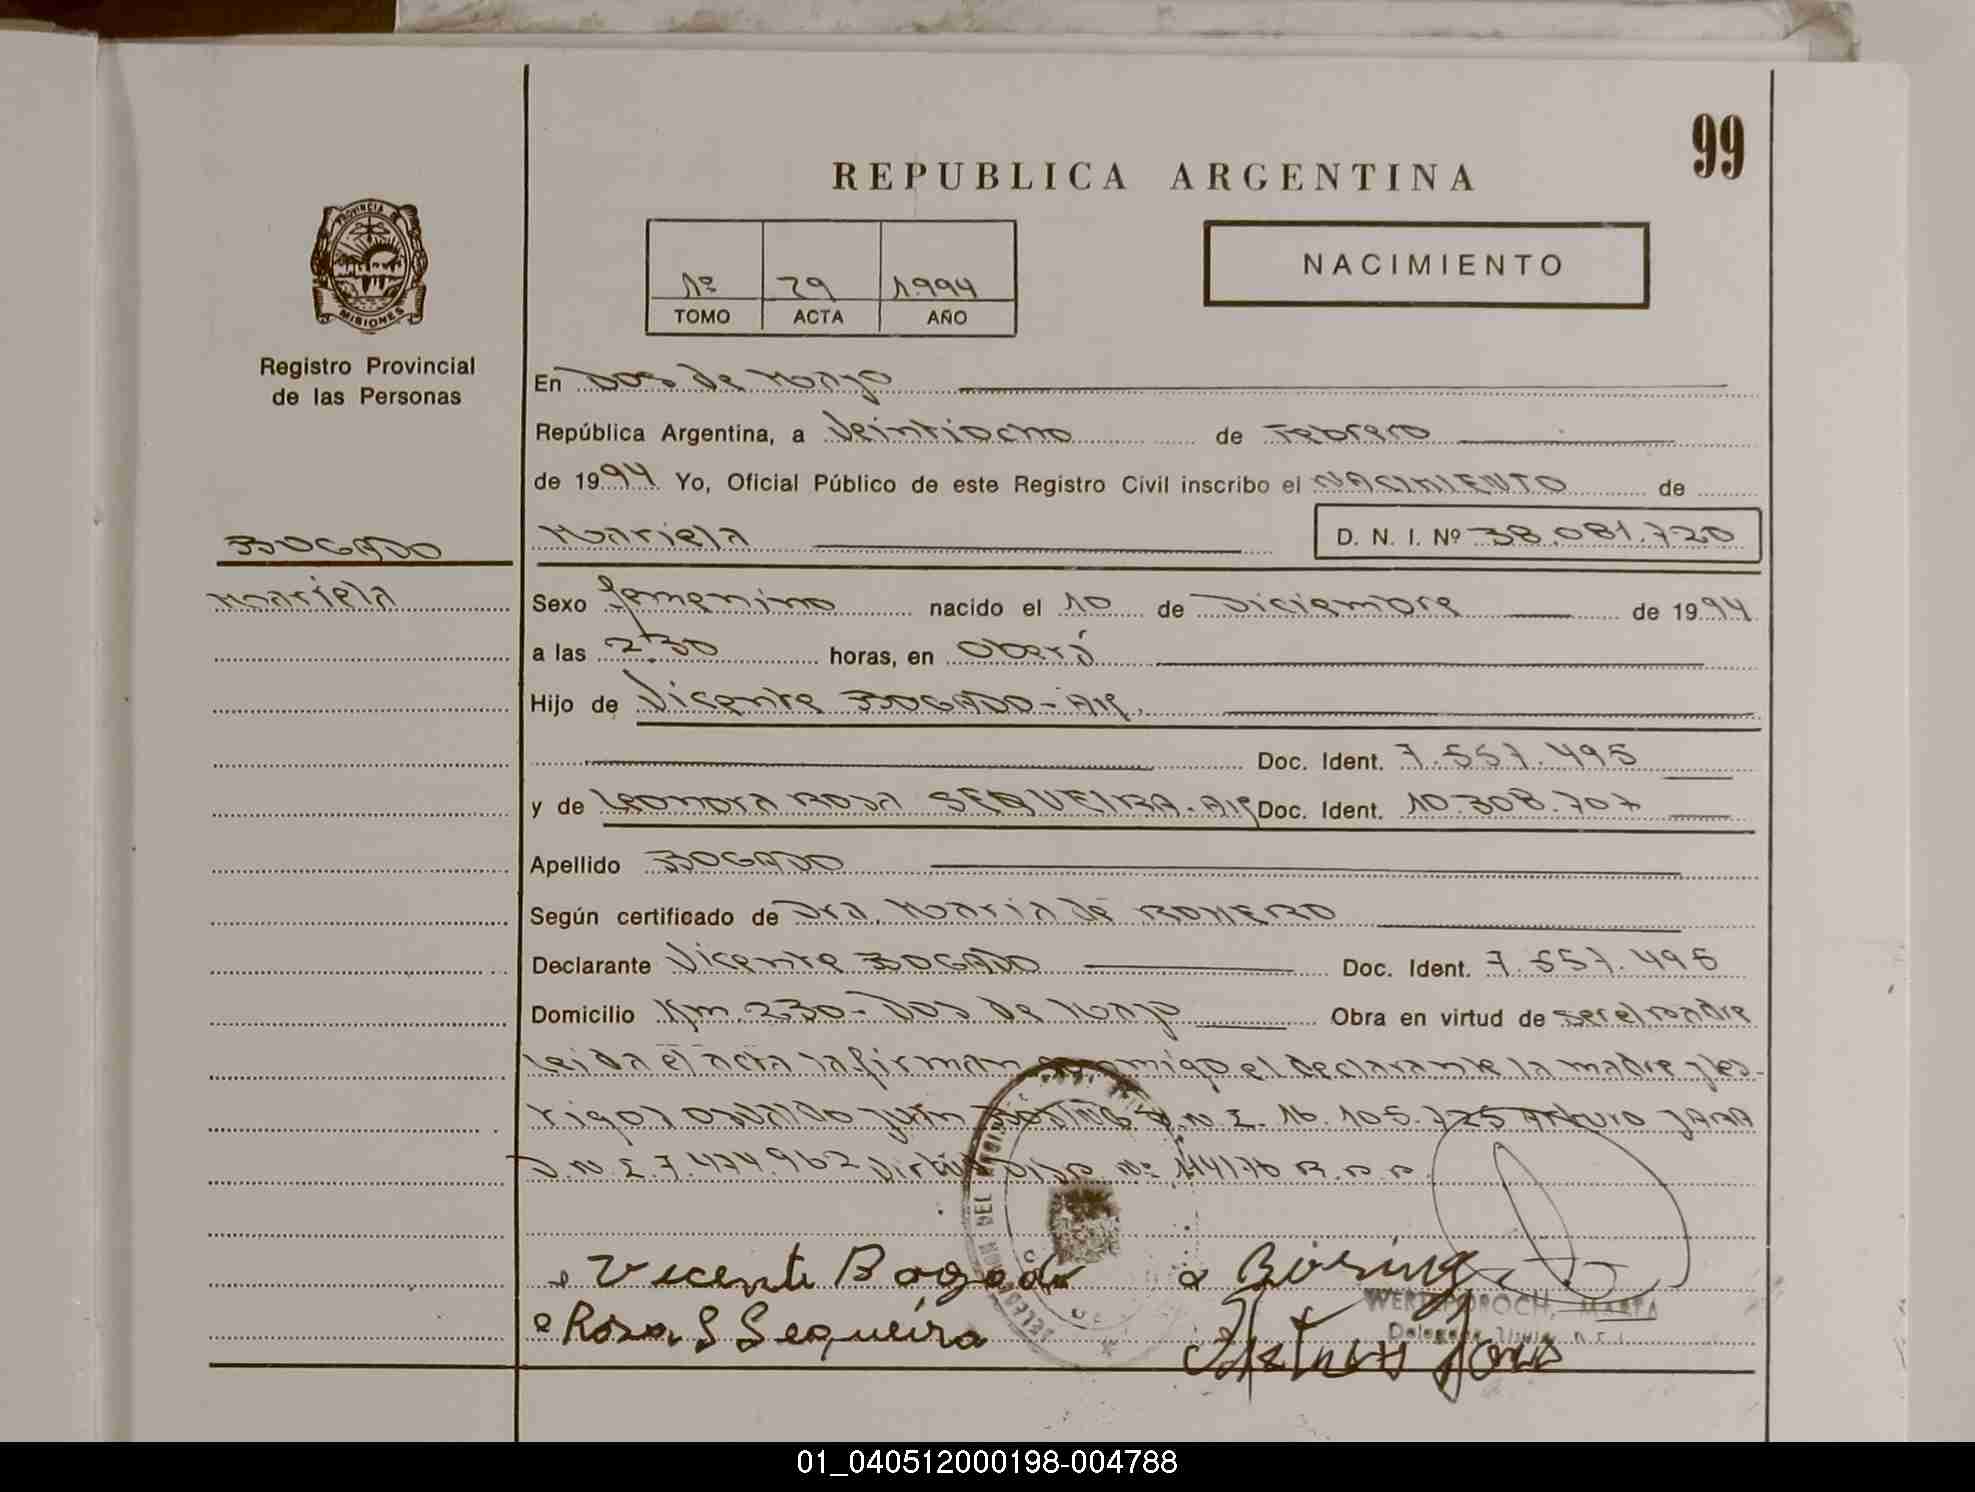 99
REPUBLICA ARGENTINA
1º 79 1994
TOMO ACTA AÑO
NACIMIENTO
PROVINCIA DE
MISIONES
Registro Provincial
de las Personas
En Dos de Mayo
República Argentina, a Veintiocho de Febrero
de 1994 Yo, Oficial Público de este Registro Civil inscribo el NACIMIENTO de
BOGADO
Mariela D. N. I. Nº 38.081.720
Mariela
Sexo femenino nacido el 10 de Diciembre de 1994
a las 2:30 horas, en Oberá
Hijo de Vicente BOGADO - Arg.
Doc. Ident. 7.557.495
y de Leonora Rosa SEQUEIRA - Arg Doc. Ident. 10.308.707
Apellido BOGADO
Según certificado de Dra. Maria de ROMERO
Declarante Vicente BOGADO Doc. Ident. 7.557.495
Domicilio Km. 230 - Dos de Mayo Obra en virtud de ser el padre
Leida el acta la firman conmigo el declarante la madre y tes-
tigos Osvaldo Juan D.N.I. 16.105.725 Arturo JARA
D.N.I. 7.474.962 Disp. Nº 114/76 R.P.P.
Vicente Bogado Boising
Rosa S Sequeira Arturo Jara
MARTA
01_040512000198-004788